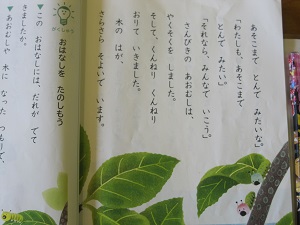 あそこまで　とんで　みたいな。」
「わたしも、あそこまで
とんで　みたい。」
「それなら、みんなで　いこう。」
さんびきの　あおむしは、
やくそくを　しました。
そして、くんねり　くんねり
おりて　いきました。
木の　はが、
さらさら　そよいで　います。
がくしゅう
おはなしを　たのしもう
▼この　おはなしには、だれが　でて
きましたか。
▼あおむしや　木に　なった　つもりで、